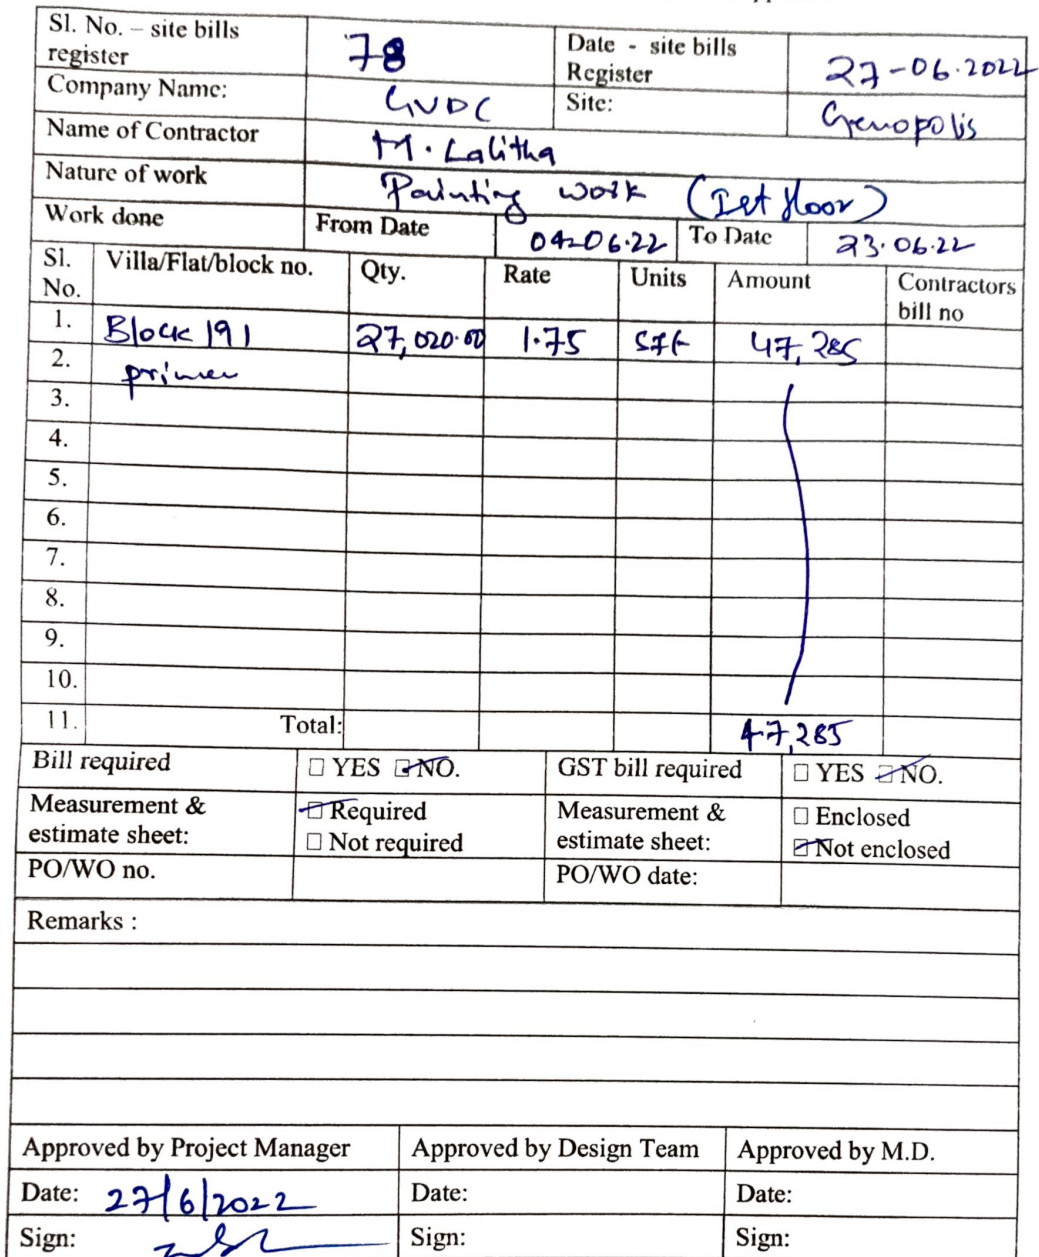 Sl. No. – site bills register 78 Date - site bills Register 27-06.2022
Company Name: GVDC Site: Genopolis
Name of Contractor M. Lalitha
Nature of work Painting work (Ist floor)
Work done From Date 04-06.22 To Date 23.06.22
Sl. No. Villa/Flat/block no. Qty. Rate Units Amount Contractors bill no
1. Block 191 27,020.00 1.75 Sft 47,285
2. primer
3.
4.
5.
6.
7.
8.
9.
10.
11. Total: 47,285
Bill required ☐ YES ☑ NO. GST bill required ☐ YES ☑ NO.
Measurement & estimate sheet: ☑ Required ☐ Not required Measurement & estimate sheet: ☐ Enclosed ☑ Not enclosed
PO/WO no. PO/WO date:
Remarks :
Approved by Project Manager Approved by Design Team Approved by M.D.
Date: 27/6/2022 Date: Date:
Sign: Sign: Sign: